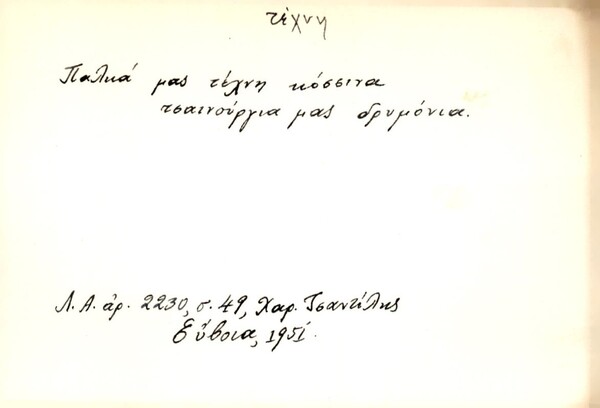 τέχνη
Παλιά μας τέχνη κόσσινα
τσαινούργια μας δρυμόνια.
Λ.Α. ἀρ. 2230, σ. 49, Χαρ. Τσαντίλης
Εὔβοια, 1951.